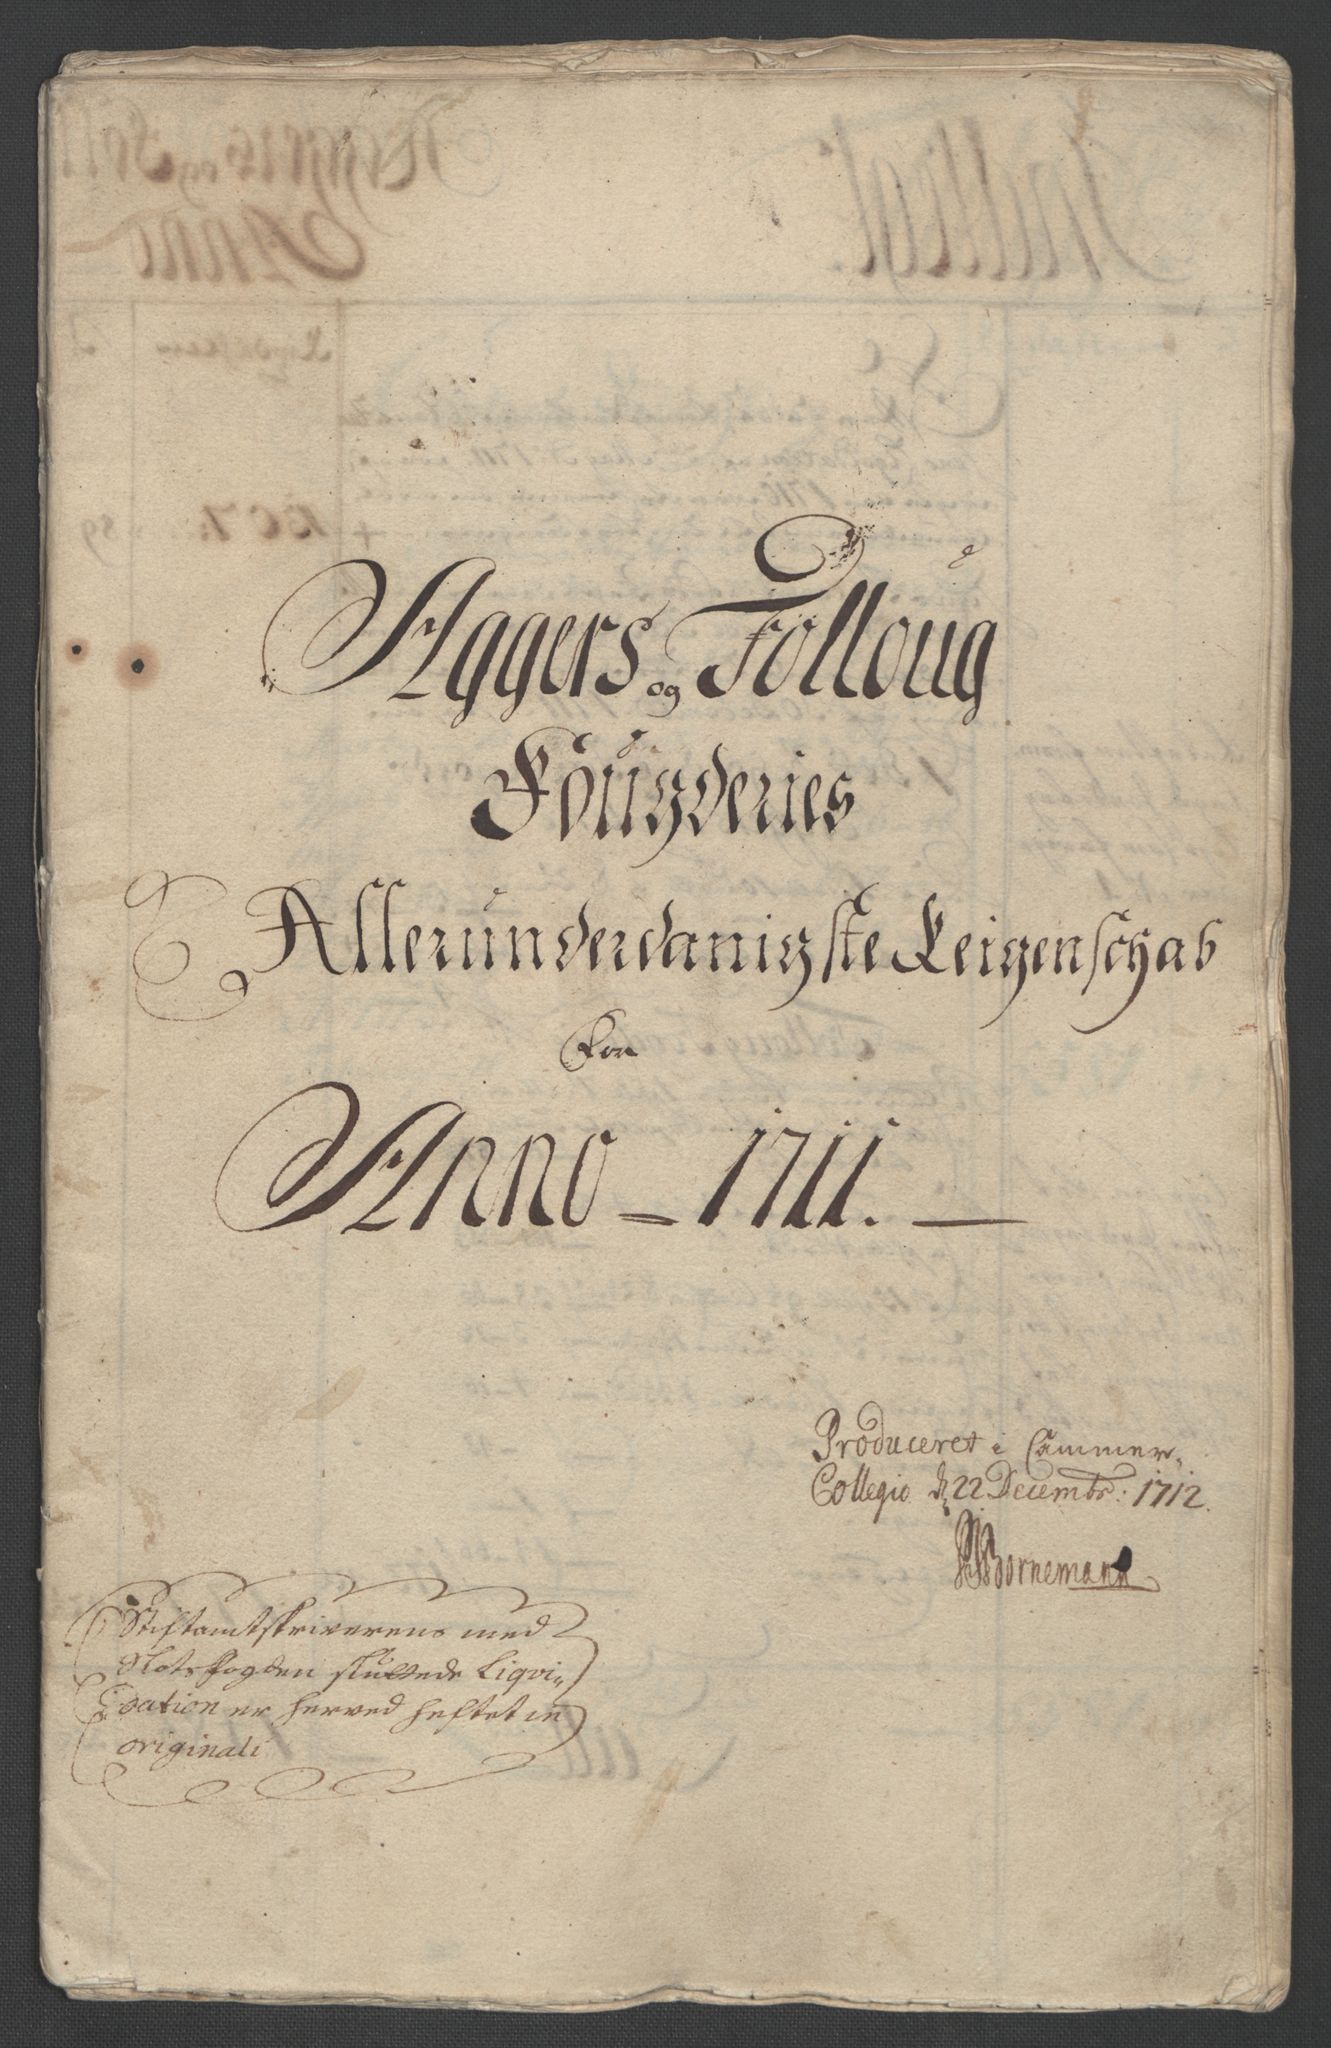 Aggers og Folloug
Fougderies
Allerunderdanigste Reigenschab
For
Anno - 1711.
Produceret i Cammer-
Collegio d 22 Decembr: 1712.
Bornemann
Stiftamtskriverens med
Slotsfogden sluttede Liqvi-
dation er herved heftet in
originali